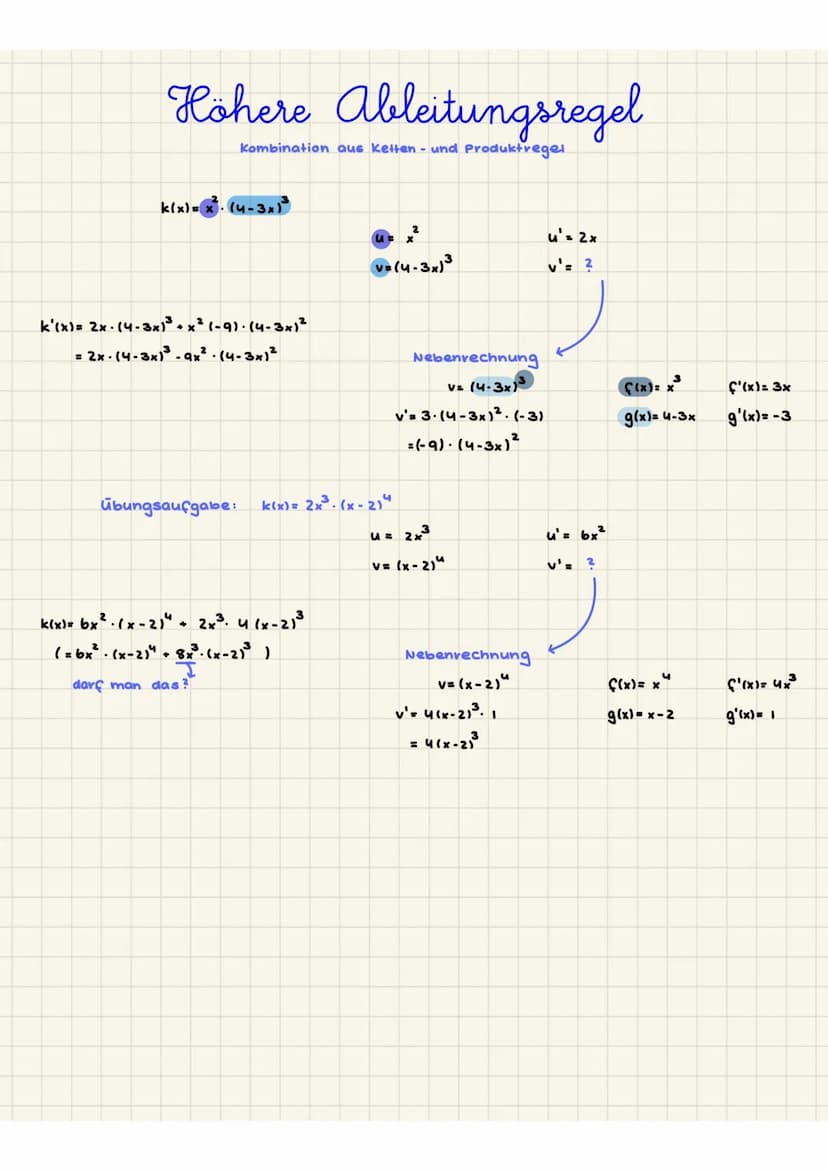 Höhere Ableitungsregel
Kombination aus Ketten- und Produktregel
k(x)= x² · (4-3x)³
u= x² u'= 2x
v=(4-3x)³ v'= ?
k'(x)= 2x·(4-3x)³ + x² (-9)·(4-3x)²
= 2x·(4-3x)³ -9x² ·(4-3x)²
Nebenrechnung
v= (4-3x)³ f(x)= x³ f'(x)= 3x
v'= 3·(4-3x)²·(-3) g(x)= 4-3x g'(x)= -3
=(-9)·(4-3x)²
Übungsaufgabe: k(x)= 2x³·(x-2)⁴
u= 2x³ u'= 6x²
v= (x-2)⁴ v'= ?
k(x)= 6x²·(x-2)⁴ + 2x³· 4(x-2)³
(=6x²·(x-2)⁴ + 8x³·(x-2)³ )
darf man das?
Nebenrechnung
v=(x-2)⁴ f(x)= x⁴ f'(x)= 4x³
v'= 4(x-2)³· 1 g(x)= x-2 g'(x)= 1
= 4(x-2)³